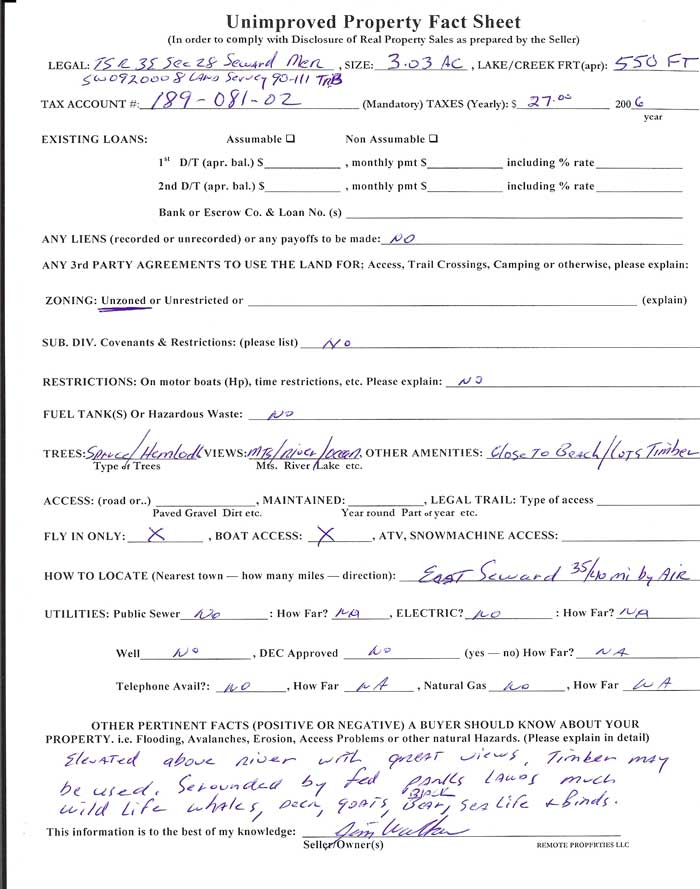 Unimproved Property Fact Sheet
(In order to comply with Disclosure of Real Property Sales as prepared by the Seller)
LEGAL: T5 R 3E Sec 28 Seward Mer , SIZE: 3.03 AC , LAKE/CREEK FRT(apr): 550 FT
SW0920008 Land Servey 90-111 TrB
TAX ACCOUNT #: 189-081-02 (Mandatory) TAXES (Yearly): $ 27.00 2006
year
EXISTING LOANS: Assumable ☐ Non Assumable ☐
1st D/T (apr. bal.) $ , monthly pmt $ including % rate
2nd D/T (apr. bal.) $ , monthly pmt $ including % rate
Bank or Escrow Co. & Loan No. (s)
ANY LIENS (recorded or unrecorded) or any payoffs to be made: NO
ANY 3rd PARTY AGREEMENTS TO USE THE LAND FOR; Access, Trail Crossings, Camping or otherwise, please explain:
ZONING: Unzoned or Unrestricted or (explain)
SUB. DIV. Covenants & Restrictions: (please list) No
RESTRICTIONS: On motor boats (Hp), time restrictions, etc. Please explain: NO
FUEL TANK(S) Or Hazardous Waste: NO
TREES: Spruce/Hemlock VIEWS: Mts/River/ocean. OTHER AMENITIES: Close To Beach/Lots Timber
Type of Trees Mts. River /Lake etc.
ACCESS: (road or..) , MAINTAINED: , LEGAL TRAIL: Type of access
Paved Gravel Dirt etc. Year round Part of year etc.
FLY IN ONLY: X , BOAT ACCESS: X , ATV, SNOWMACHINE ACCESS:
HOW TO LOCATE (Nearest town — how many miles — direction): EAST Seward 35/40 mi by Air
UTILITIES: Public Sewer No : How Far? NA , ELECTRIC? NO : How Far? NA
Well No , DEC Approved No (yes — no) How Far? NA
Telephone Avail?: NO , How Far NA , Natural Gas No , How Far NA
OTHER PERTINENT FACTS (POSITIVE OR NEGATIVE) A BUYER SHOULD KNOW ABOUT YOUR
PROPERTY. i.e. Flooding, Avalanches, Erosion, Access Problems or other natural Hazards. (Please explain in detail)
Elevated above river with great views, Timber may
be used. Serounded by fed parks Lands much
wild Life whales, Deer, goats, Black Bear, sea Life + birds.
This information is to the best of my knowledge: Jim Walker
Seller/Owner(s) REMOTE PROPERTIES LLC